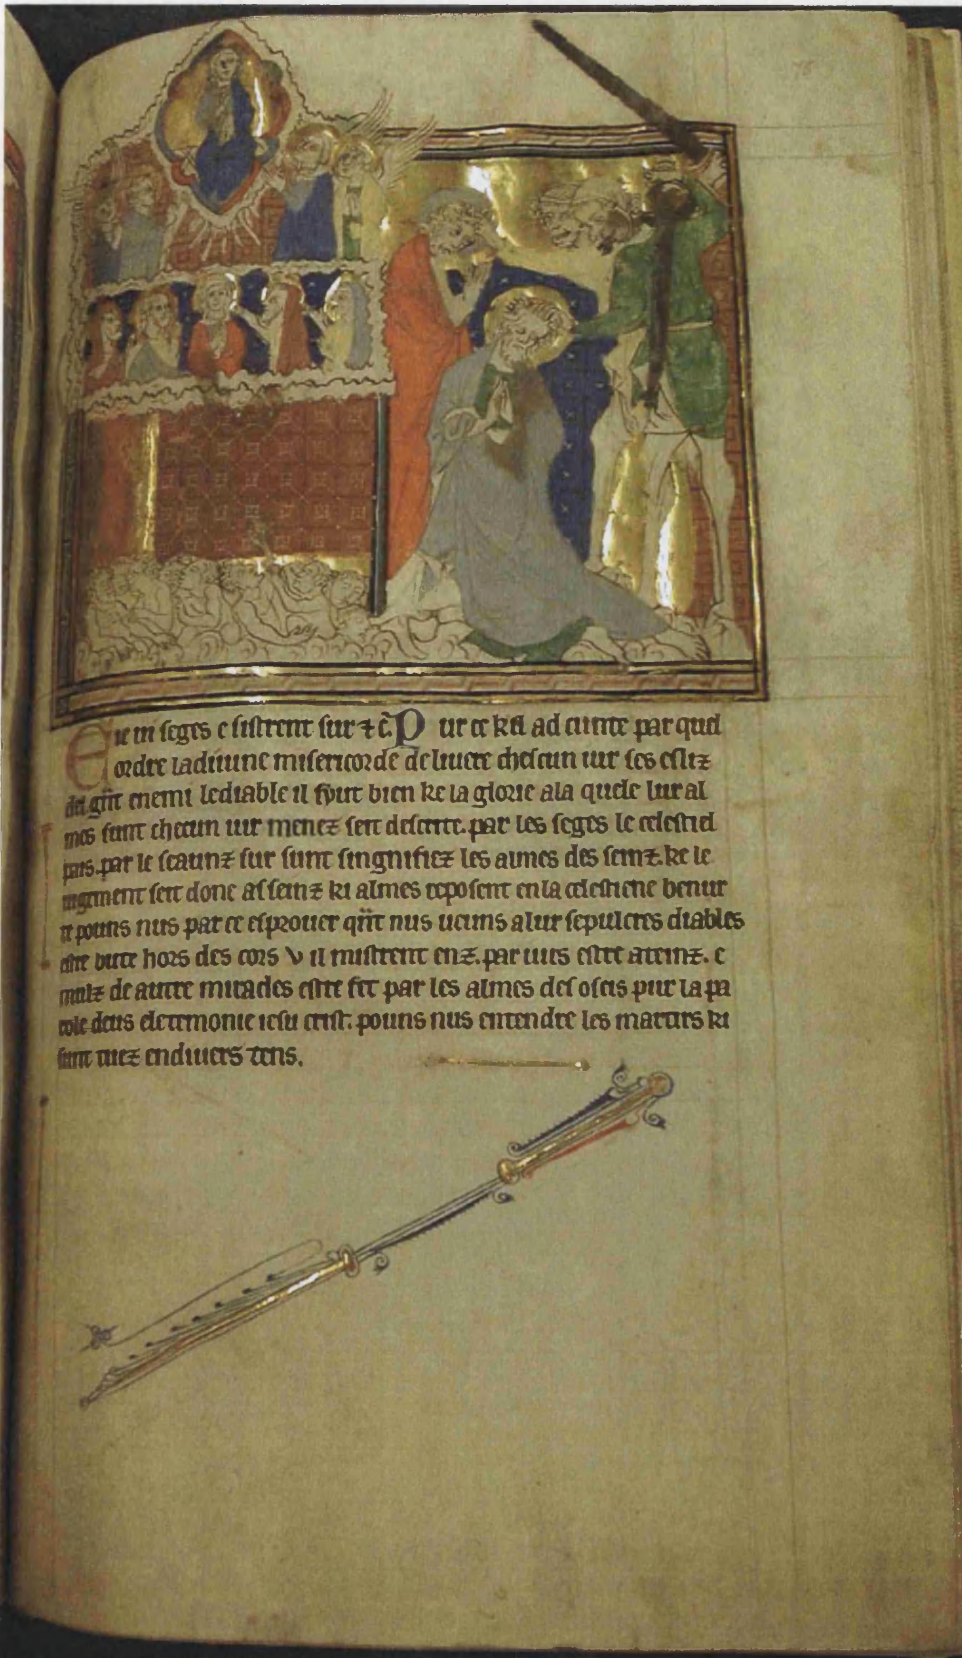 E ie ui seges e sistrent sur ⁊ c̃. P ur ce kil ad cunte par quel
ordre la diuine misericorde deliuere chescun iur ses esliz
del gñt enemi le diable il fput bien ke la glorie a la quele lur al
mes sunt checun iur menez seit descrite. par les seges le celestiel
pais. par le seaunz sur sunt singnifiez les almes des seinz. ke le
iugement seit done as seinz ki almes reposent en la celestiene benur
te pouns nus par ce esprouer qñt nus ueuns a lur sepulcres diables
estre bute hors des cors v il mistrent enz. par uirs estre ateinz. e
mulz de autre miracles estre fet par les almes des oseis pur la pa
role deus ele temonie iesu crist. pouns nus entendre les martirs ki
sunt tuez en diuers tens.